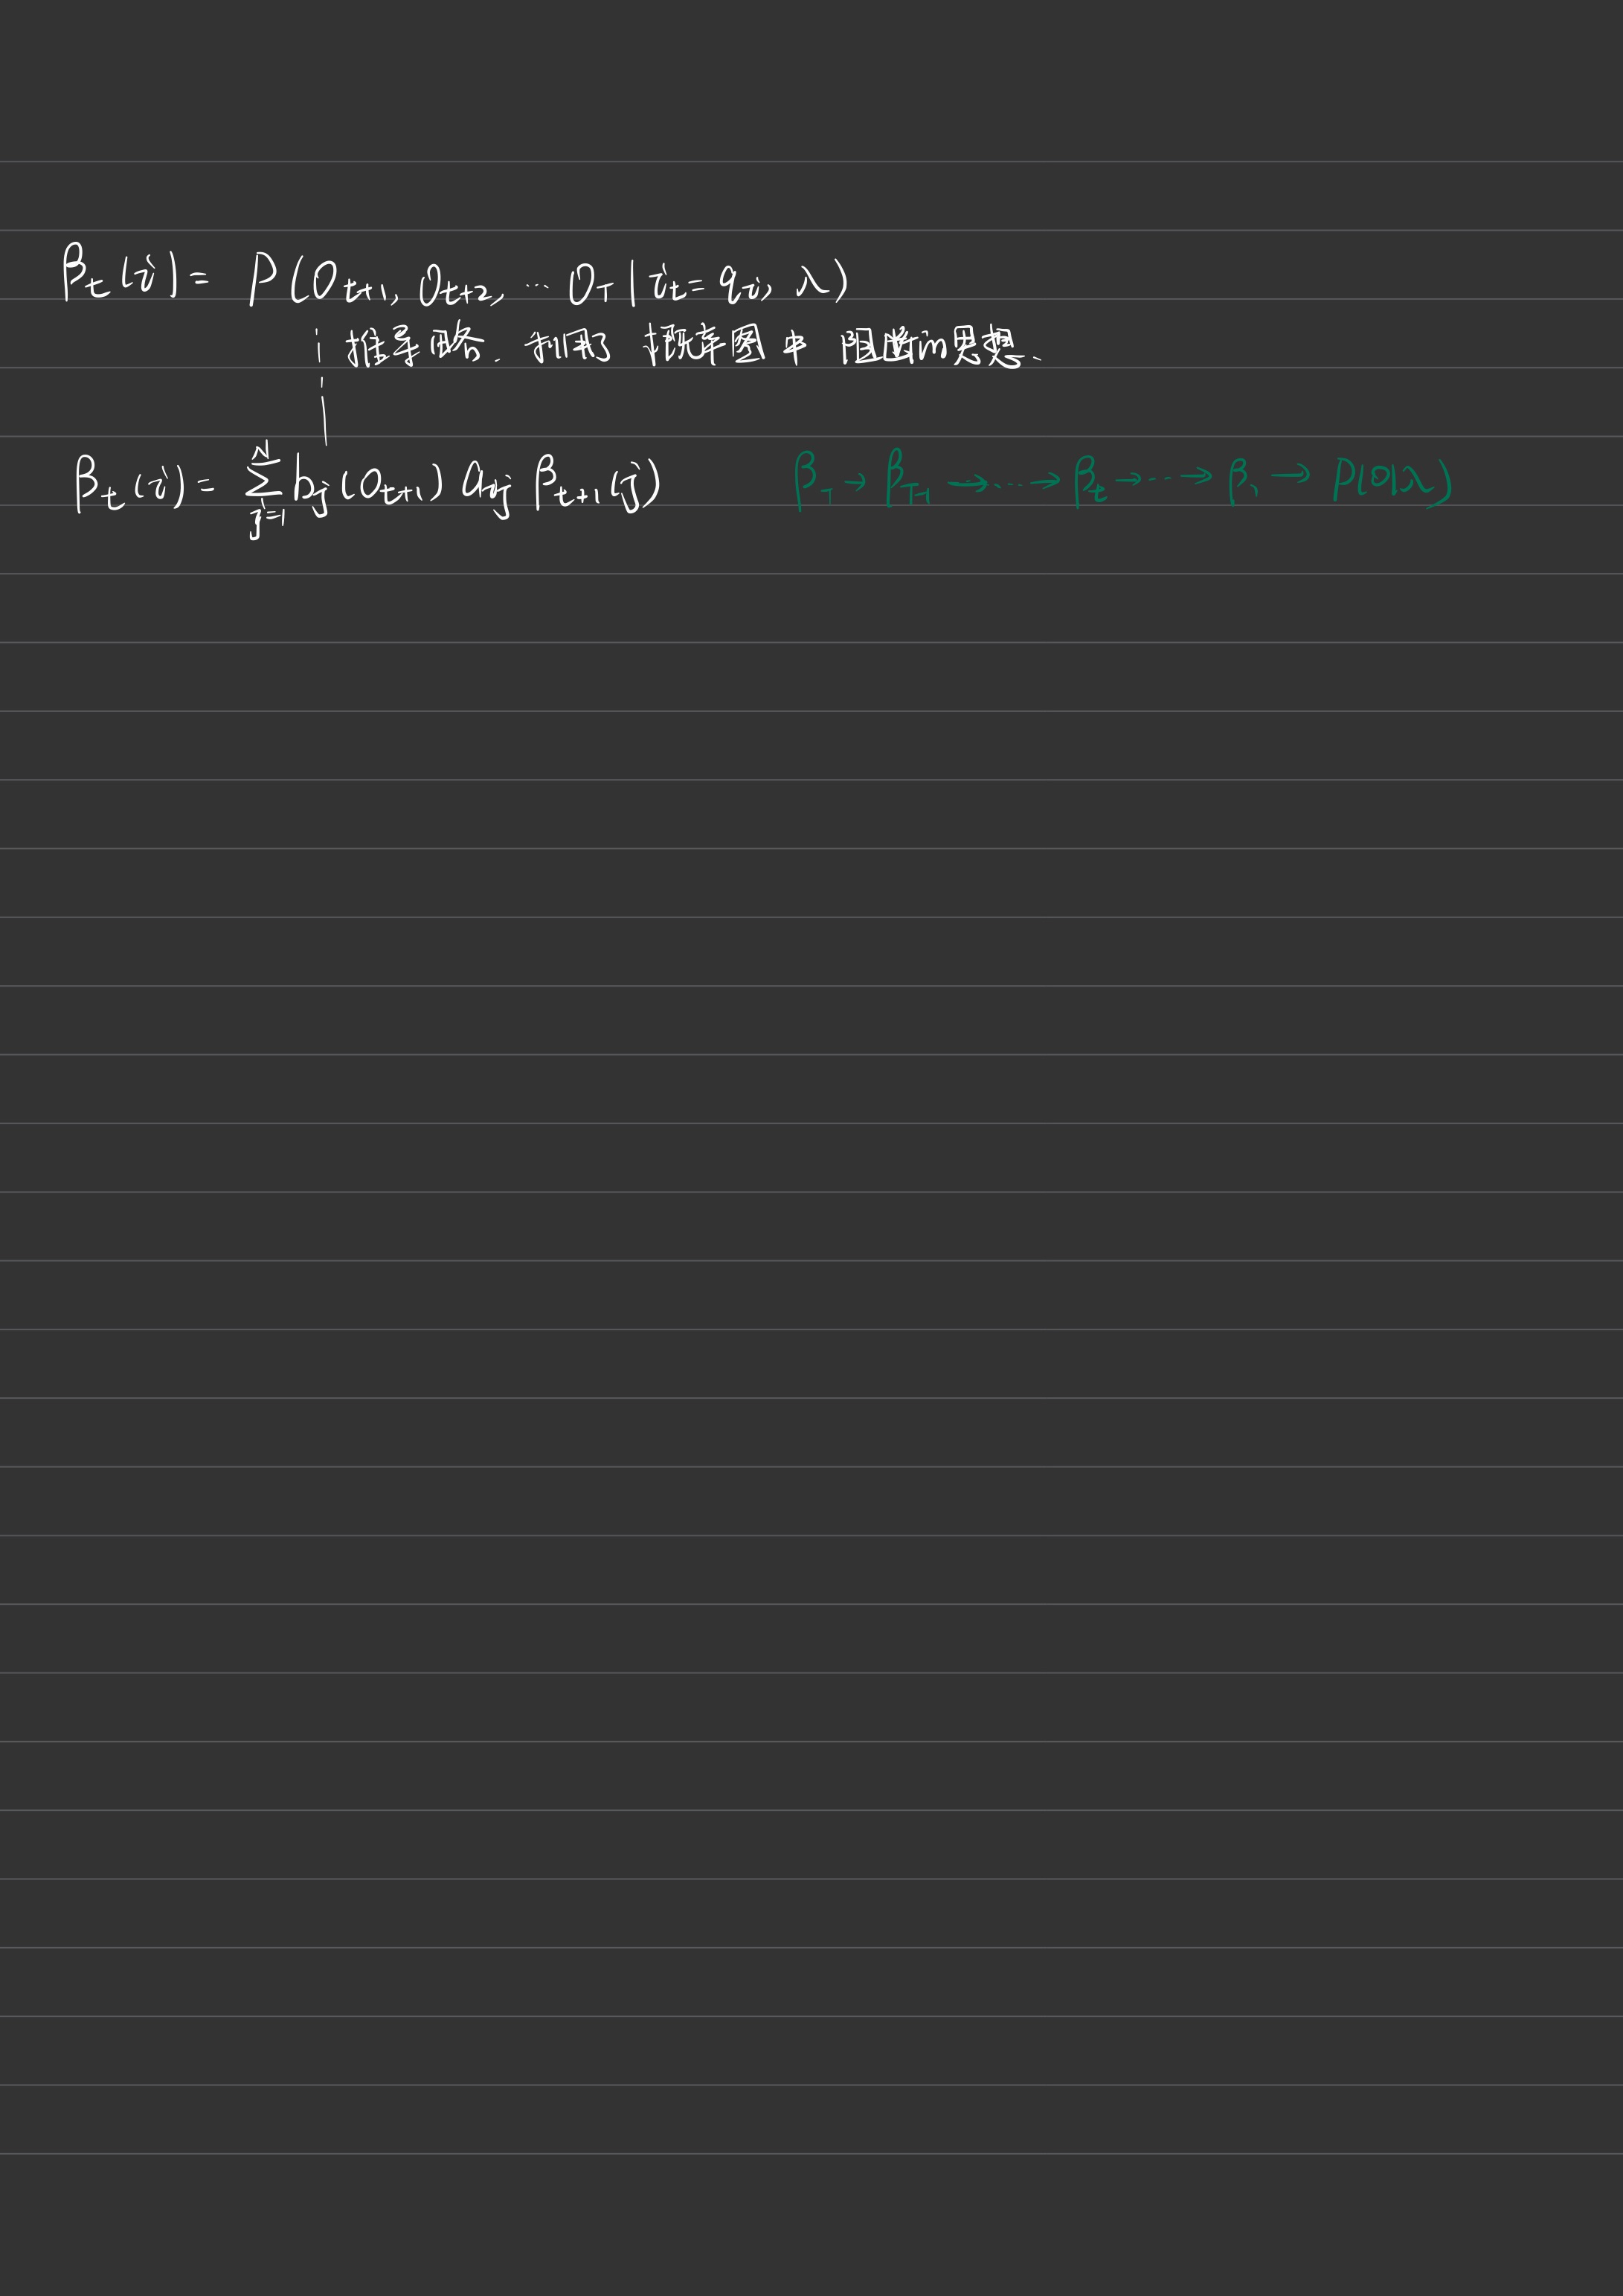 β_t(i) = P(O_{t+1}, O_{t+2}, ... O_T | i_t = q_i, λ)
推导略. 利用了 概率图中 阻断的思想.
β_t(i) = Σ_{j=1}^{N} b_j(O_{t+1}) a_{ij} β_{t+1}(j) β_T → β_{T-1} → ... → β_t → ... → β_1 → P(O|λ)